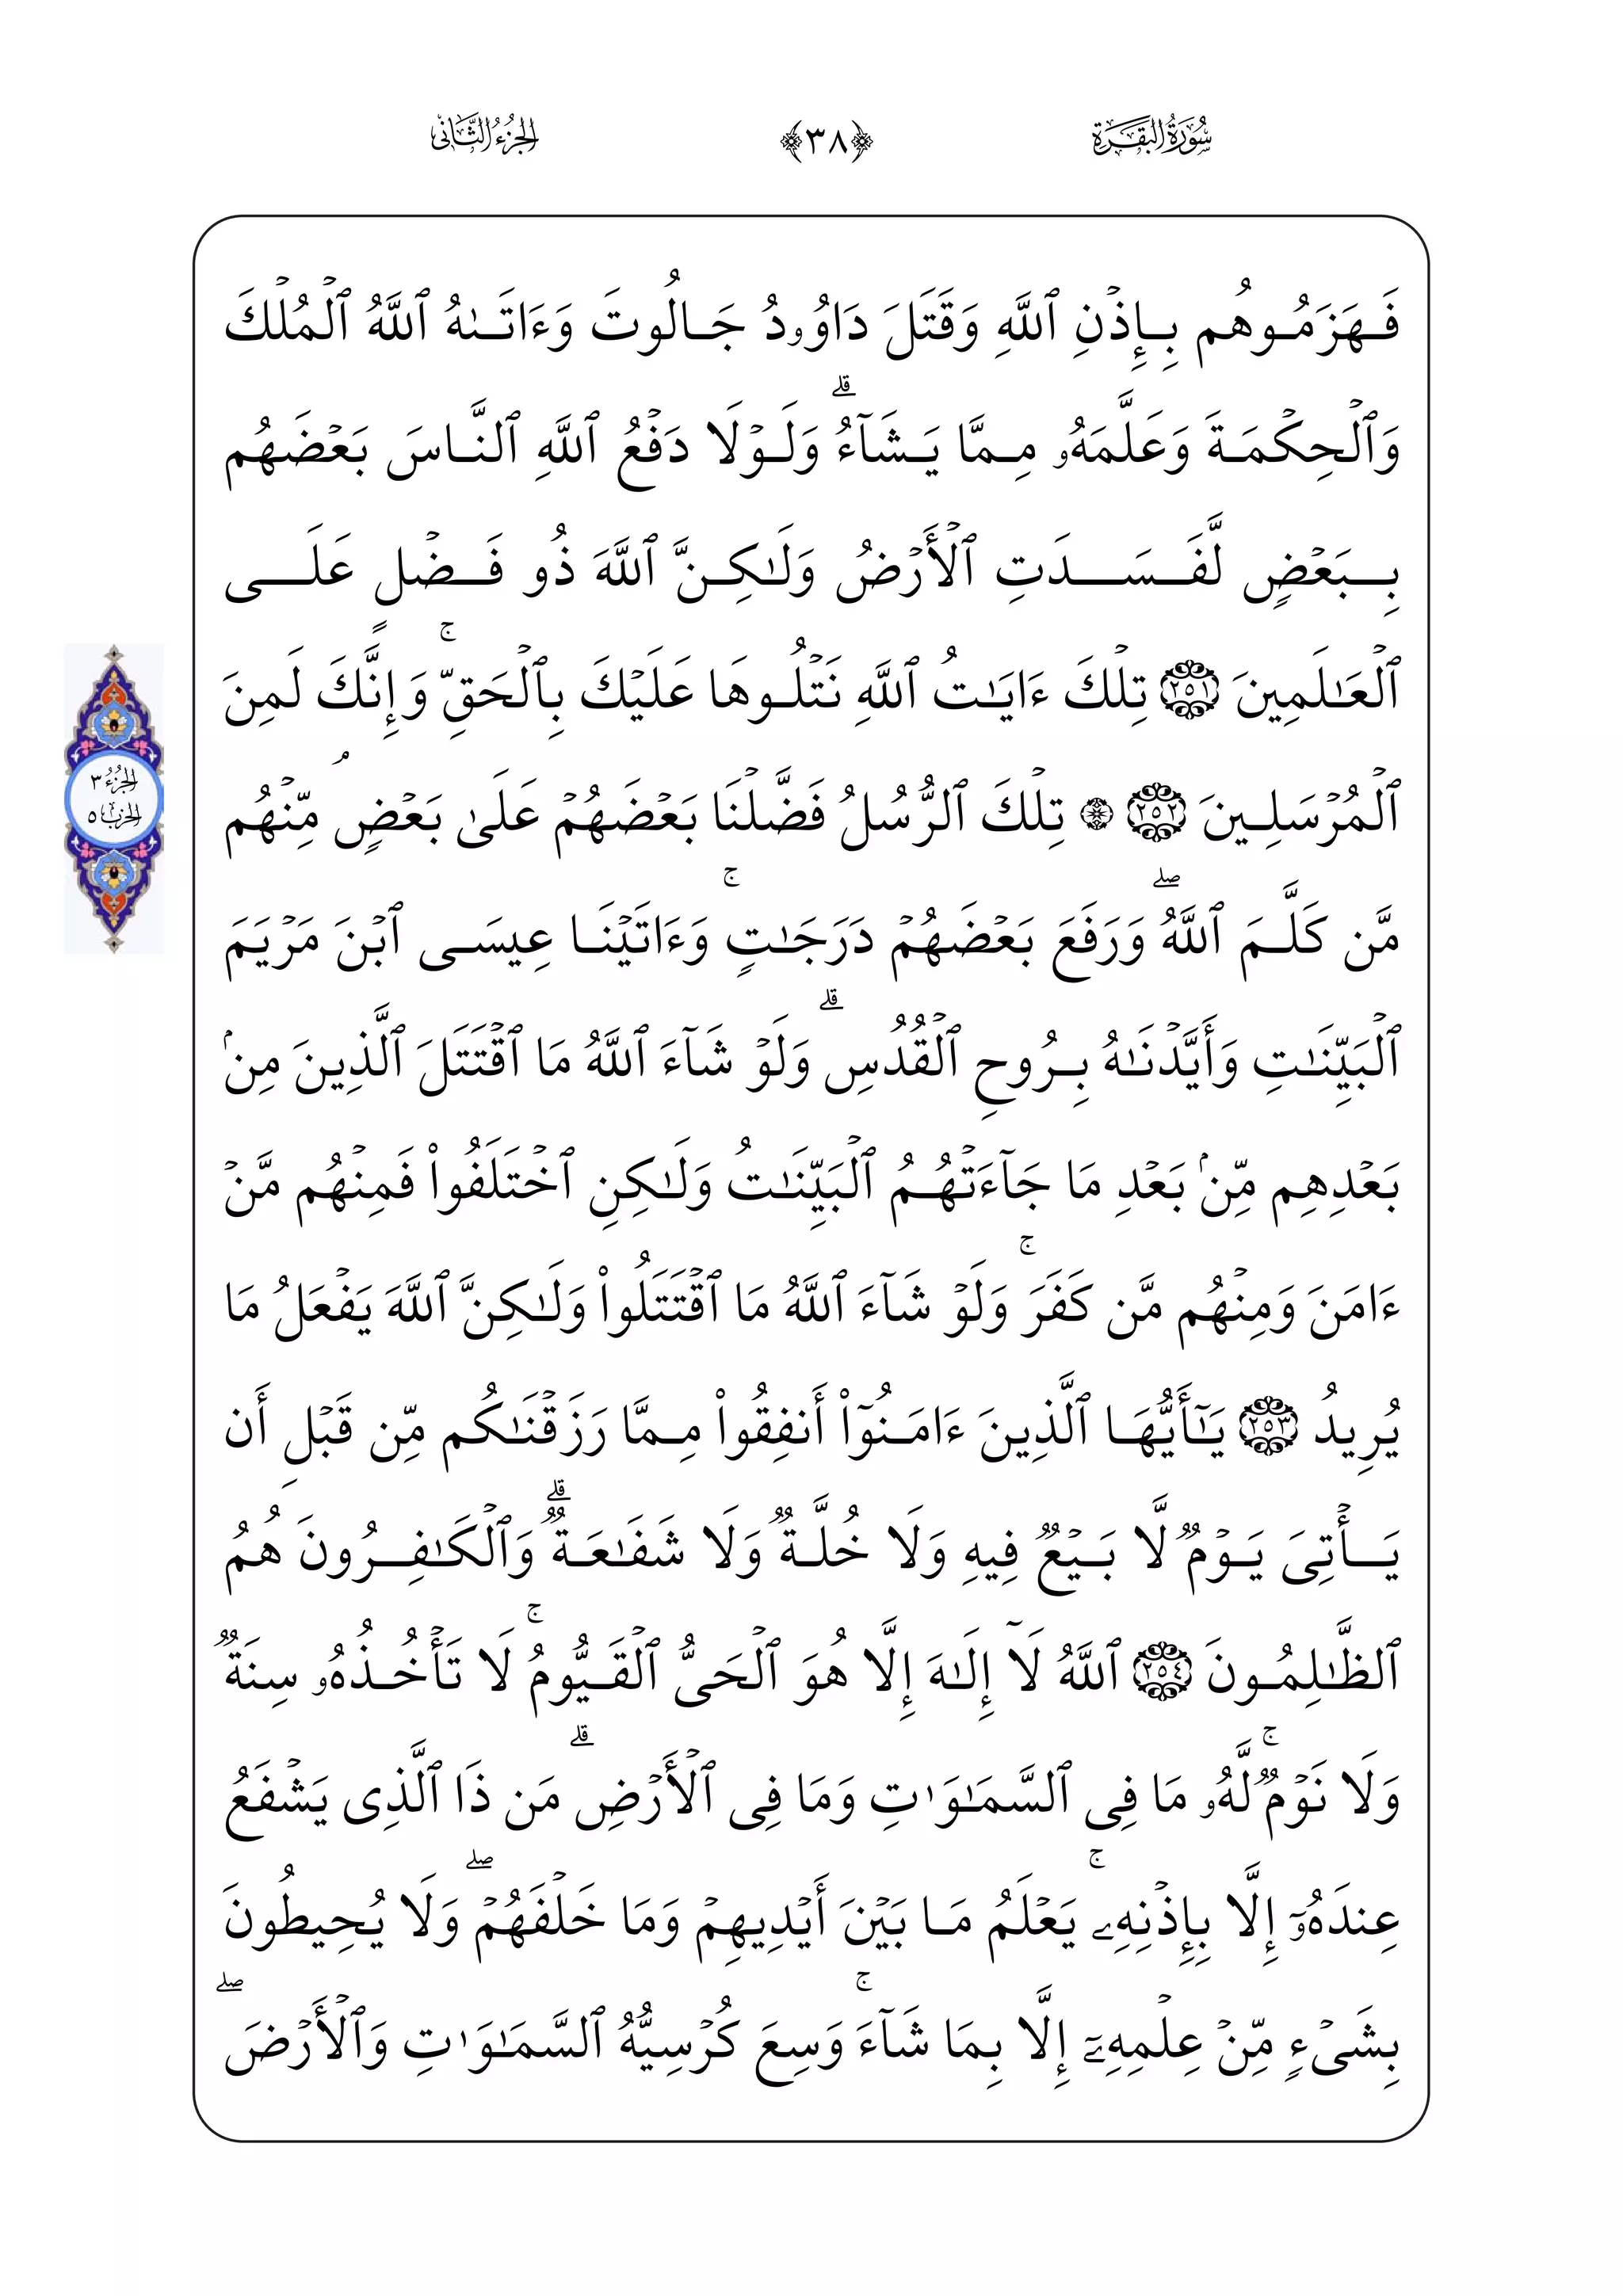 سُورَةُ البَقَرَةِ ﴿٣٨﴾ الجُزْءُ الثَّانِي
فَهَزَمُوهُم بِإِذۡنِ ٱللَّهِ وَقَتَلَ دَاوُۥدُ جَالُوتَ وَءَاتَىٰهُ ٱللَّهُ ٱلۡمُلۡكَ
وَٱلۡحِكۡمَةَ وَعَلَّمَهُۥ مِمَّا يَشَآءُۗ وَلَوۡلَا دَفۡعُ ٱللَّهِ ٱلنَّاسَ بَعۡضَهُم
بِبَعۡضٖ لَّفَسَدَتِ ٱلۡأَرۡضُ وَلَٰكِنَّ ٱللَّهَ ذُو فَضۡلٍ عَلَى
ٱلۡعَٰلَمِينَ ٢٥١ تِلۡكَ ءَايَٰتُ ٱللَّهِ نَتۡلُوهَا عَلَيۡكَ بِٱلۡحَقِّۚ وَإِنَّكَ لَمِنَ
ٱلۡمُرۡسَلِينَ ٢٥٢ ۞ تِلۡكَ ٱلرُّسُلُ فَضَّلۡنَا بَعۡضَهُمۡ عَلَىٰ بَعۡضٖۘ مِّنۡهُم
مَّن كَلَّمَ ٱللَّهُۖ وَرَفَعَ بَعۡضَهُمۡ دَرَجَٰتٖۚ وَءَاتَيۡنَا عِيسَى ٱبۡنَ مَرۡيَمَ
ٱلۡبَيِّنَٰتِ وَأَيَّدۡنَٰهُ بِرُوحِ ٱلۡقُدُسِۗ وَلَوۡ شَآءَ ٱللَّهُ مَا ٱقۡتَتَلَ ٱلَّذِينَ مِنۢ
بَعۡدِهِم مِّنۢ بَعۡدِ مَا جَآءَتۡهُمُ ٱلۡبَيِّنَٰتُ وَلَٰكِنِ ٱخۡتَلَفُواْ فَمِنۡهُم مَّنۡ
ءَامَنَ وَمِنۡهُم مَّن كَفَرَۚ وَلَوۡ شَآءَ ٱللَّهُ مَا ٱقۡتَتَلُواْ وَلَٰكِنَّ ٱللَّهَ يَفۡعَلُ مَا
يُرِيدُ ٢٥٣ يَٰٓأَيُّهَا ٱلَّذِينَ ءَامَنُوٓاْ أَنفِقُواْ مِمَّا رَزَقۡنَٰكُم مِّن قَبۡلِ أَن
يَأۡتِيَ يَوۡمٞ لَّا بَيۡعٞ فِيهِ وَلَا خُلَّةٞ وَلَا شَفَٰعَةٞۗ وَٱلۡكَٰفِرُونَ هُمُ
ٱلظَّٰلِمُونَ ٢٥٤ ٱللَّهُ لَآ إِلَٰهَ إِلَّا هُوَ ٱلۡحَيُّ ٱلۡقَيُّومُۚ لَا تَأۡخُذُهُۥ سِنَةٞ
وَلَا نَوۡمٞۚ لَّهُۥ مَا فِي ٱلسَّمَٰوَٰتِ وَمَا فِي ٱلۡأَرۡضِۗ مَن ذَا ٱلَّذِي يَشۡفَعُ
عِندَهُۥٓ إِلَّا بِإِذۡنِهِۦۚ يَعۡلَمُ مَا بَيۡنَ أَيۡدِيهِمۡ وَمَا خَلۡفَهُمۡۖ وَلَا يُحِيطُونَ
بِشَيۡءٖ مِّنۡ عِلۡمِهِۦٓ إِلَّا بِمَا شَآءَۚ وَسِعَ كُرۡسِيُّهُ ٱلسَّمَٰوَٰتِ وَٱلۡأَرۡضَۖ
الجُزْءُ ٣
الحِزْبُ ٥